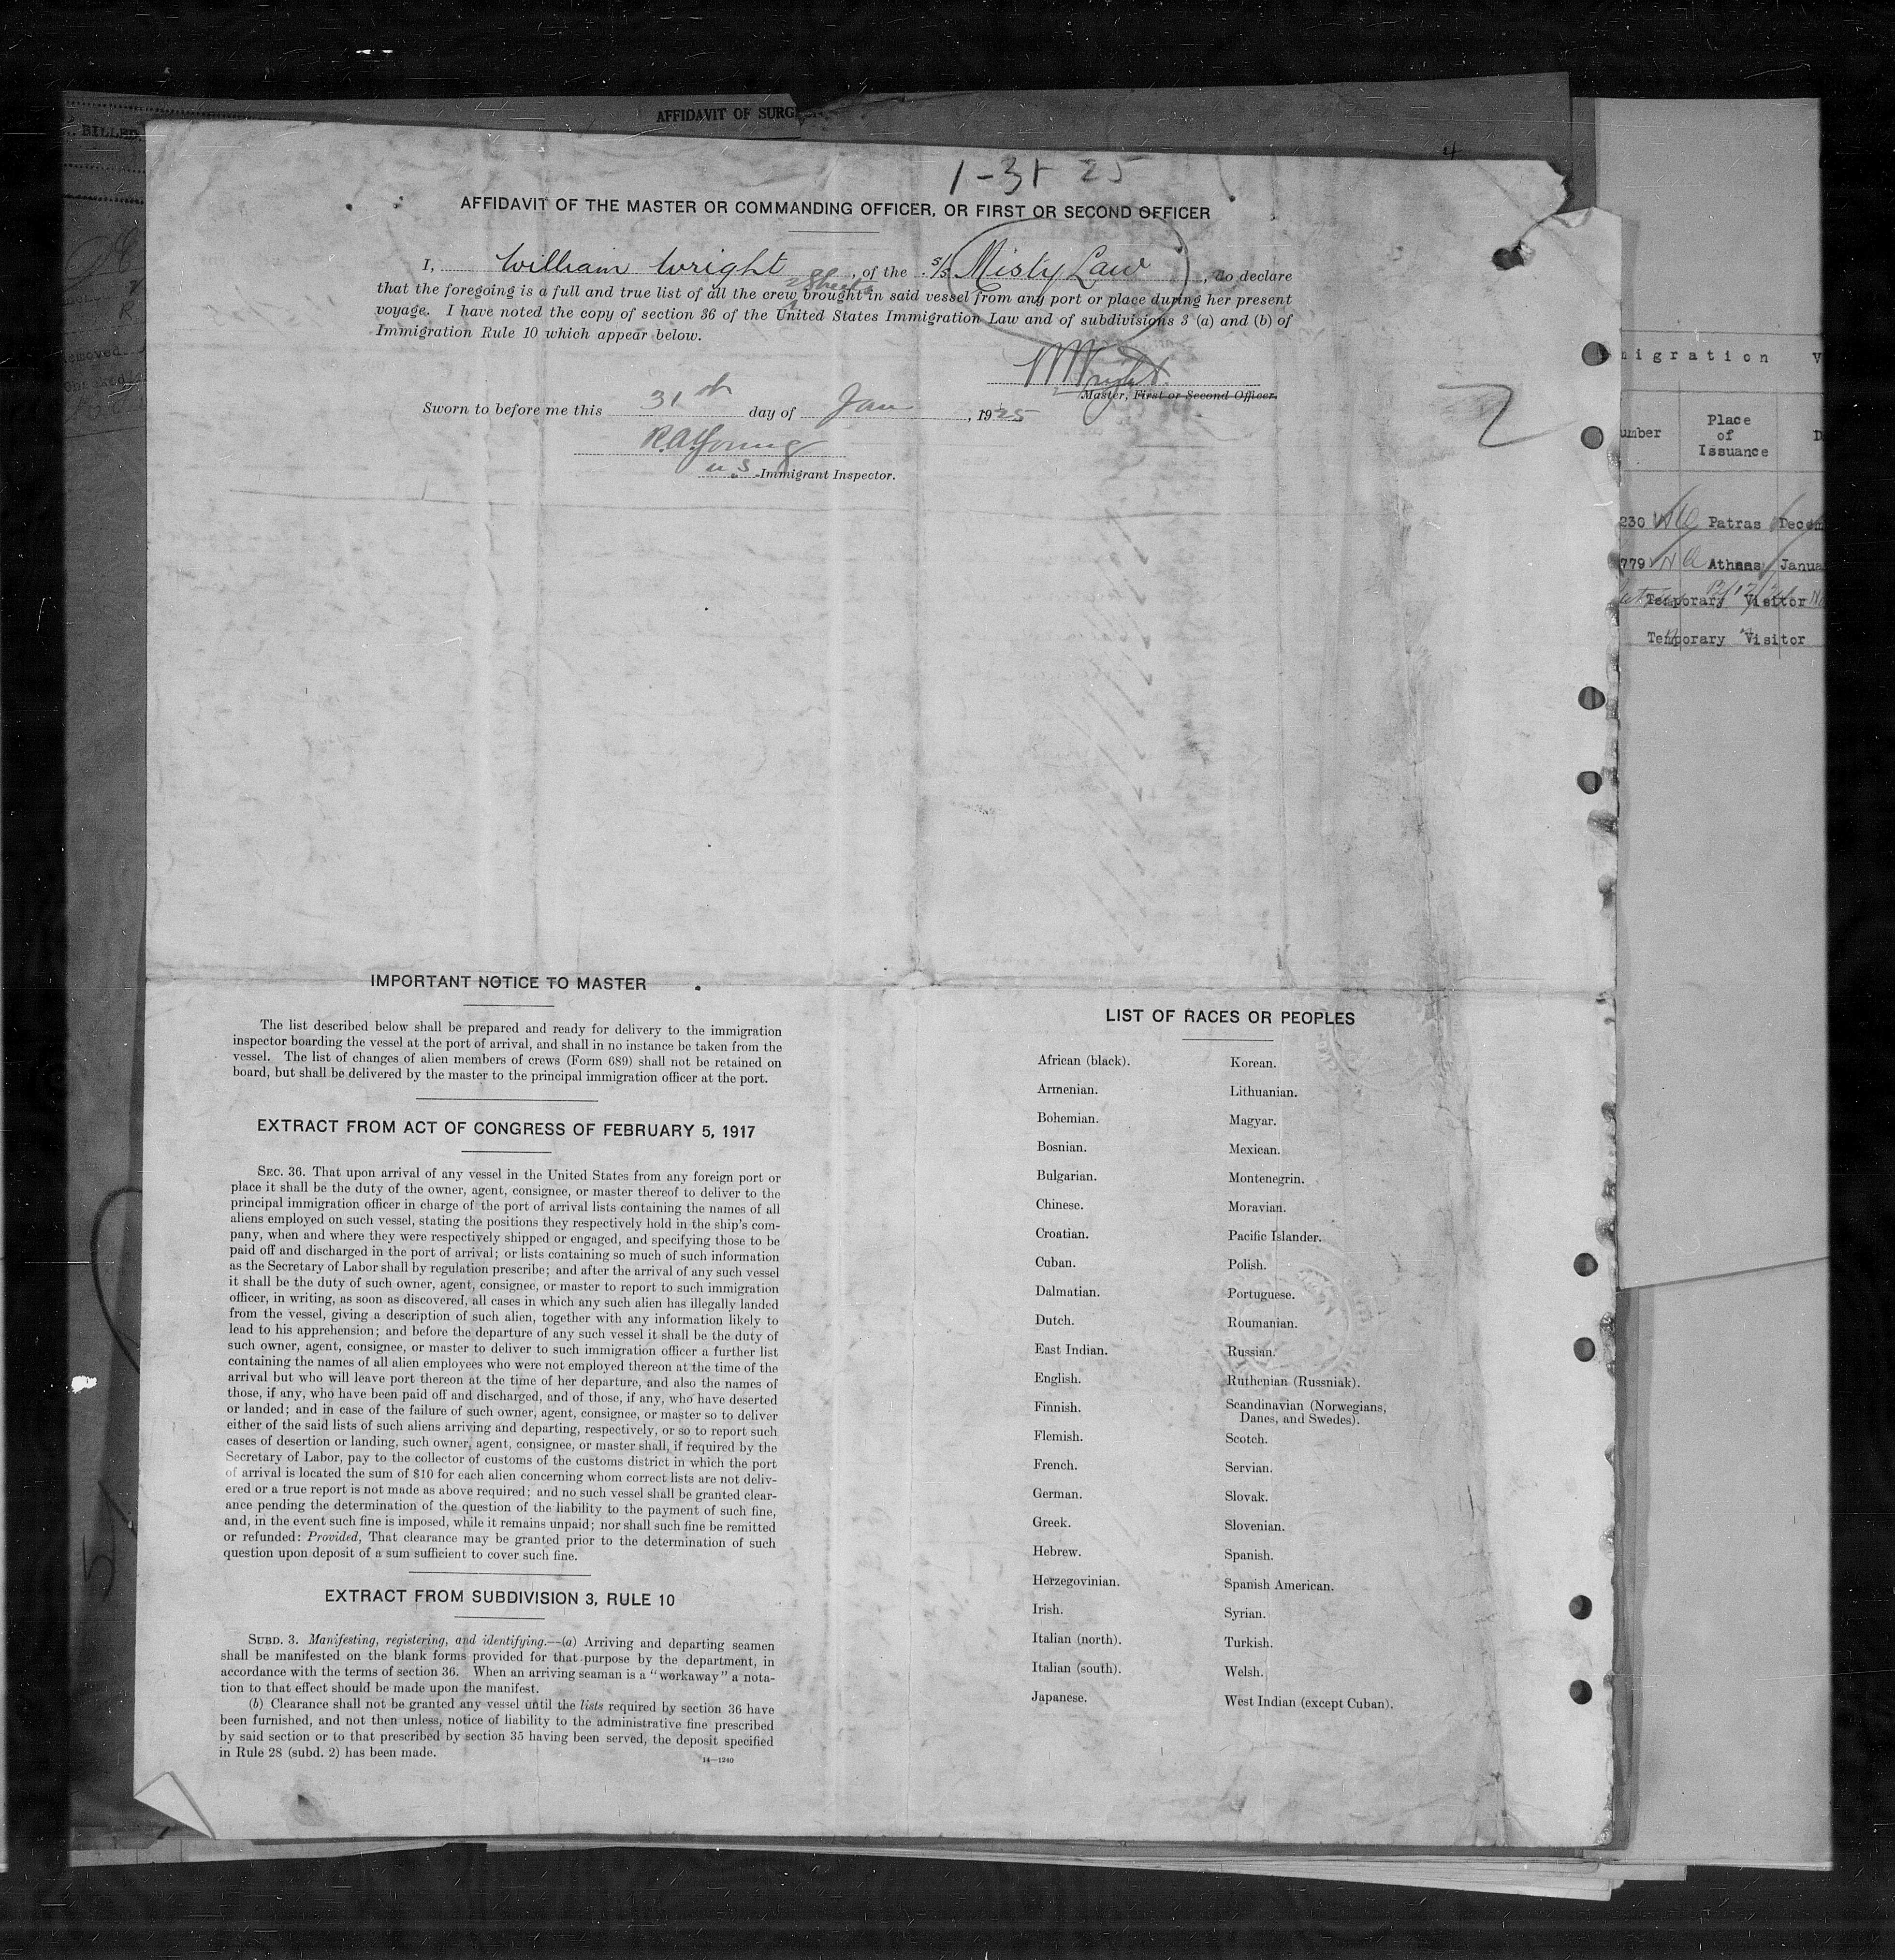 AFFIDAVIT OF SURG
BILLED
4
1-31 25
AFFIDAVIT OF THE MASTER OR COMMANDING OFFICER, OR FIRST OR SECOND OFFICER
I, William Wright, of the S/S Misty Law, do declare
that the foregoing is a full and true list of all the crew brought in said vessel from any port or place during her present
voyage. I have noted the copy of section 36 of the United States Immigration Law and of subdivisions 3 (a) and (b) of
Immigration Rule 10 which appear below.
W Wright
Master, First or Second Officer.
Sworn to before me this 31st day of Jan, 1925
R.A. Young
U.S. Immigrant Inspector.
2
IMPORTANT NOTICE TO MASTER
The list described below shall be prepared and ready for delivery to the immigration
inspector boarding the vessel at the port of arrival, and shall in no instance be taken from the
vessel. The list of changes of alien members of crews (Form 689) shall not be retained on
board, but shall be delivered by the master to the principal immigration officer at the port.
EXTRACT FROM ACT OF CONGRESS OF FEBRUARY 5, 1917
SEC. 36. That upon arrival of any vessel in the United States from any foreign port or
place it shall be the duty of the owner, agent, consignee, or master thereof to deliver to the
principal immigration officer in charge of the port of arrival lists containing the names of all
aliens employed on such vessel, stating the positions they respectively hold in the ship's com-
pany, when and where they were respectively shipped or engaged, and specifying those to be
paid off and discharged in the port of arrival; or lists containing so much of such information
as the Secretary of Labor shall by regulation prescribe; and after the arrival of any such vessel
it shall be the duty of such owner, agent, consignee, or master to report to such immigration
officer, in writing, as soon as discovered, all cases in which any such alien has illegally landed
from the vessel, giving a description of such alien, together with any information likely to
lead to his apprehension; and before the departure of any such vessel it shall be the duty of
such owner, agent, consignee, or master to deliver to such immigration officer a further list
containing the names of all alien employees who were not employed thereon at the time of the
arrival but who will leave port thereon at the time of her departure, and also the names of
those, if any, who have been paid off and discharged, and of those, if any, who have deserted
or landed; and in case of the failure of such owner, agent, consignee, or master so to deliver
either of the said lists of such aliens arriving and departing, respectively, or so to report such
cases of desertion or landing, such owner, agent, consignee, or master shall, if required by the
Secretary of Labor, pay to the collector of customs of the customs district in which the port
of arrival is located the sum of $10 for each alien concerning whom correct lists are not deliv-
ered or a true report is not made as above required; and no such vessel shall be granted clear-
ance pending the determination of the question of the liability to the payment of such fine,
and, in the event such fine is imposed, while it remains unpaid; nor shall such fine be remitted
or refunded: Provided, That clearance may be granted prior to the determination of such
question upon deposit of a sum sufficient to cover such fine.
EXTRACT FROM SUBDIVISION 3, RULE 10
SUBD. 3. Manifesting, registering, and identifying.—(a) Arriving and departing seamen
shall be manifested on the blank forms provided for that purpose by the department, in
accordance with the terms of section 36. When an arriving seaman is a "workaway" a nota-
tion to that effect should be made upon the manifest.
(b) Clearance shall not be granted any vessel until the lists required by section 36 have
been furnished, and not then unless, notice of liability to the administrative fine prescribed
by said section or to that prescribed by section 35 having been served, the deposit specified
in Rule 28 (subd. 2) has been made.
14—1240
LIST OF RACES OR PEOPLES
African (black).
Armenian.
Bohemian.
Bosnian.
Bulgarian.
Chinese.
Croatian.
Cuban.
Dalmatian.
Dutch.
East Indian.
English.
Finnish.
Flemish.
French.
German.
Greek.
Hebrew.
Herzegovinian.
Irish.
Italian (north).
Italian (south).
Japanese.
Korean.
Lithuanian.
Magyar.
Mexican.
Montenegrin.
Moravian.
Pacific Islander.
Polish.
Portuguese.
Roumanian.
Russian.
Ruthenian (Russniak).
Scandinavian (Norwegians,
Danes, and Swedes).
Scotch.
Servian.
Slovak.
Slovenian.
Spanish.
Spanish American.
Syrian.
Turkish.
Welsh.
West Indian (except Cuban).
igration V
umber
Place
of
Issuance
D
230 Patras Decem
779 Athens Janua
Temporary Visitor
Temporary Visitor